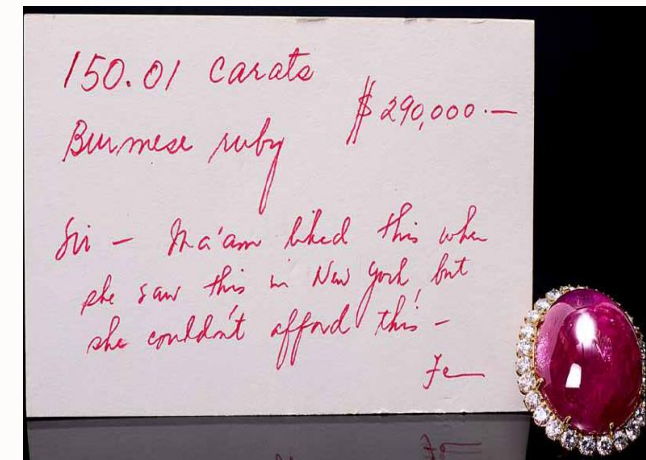 150.01 carats
$290,000.—
Burmese ruby
Sir — Ma'am liked this when
she saw this in New York, but
she couldn't afford this —
Fe